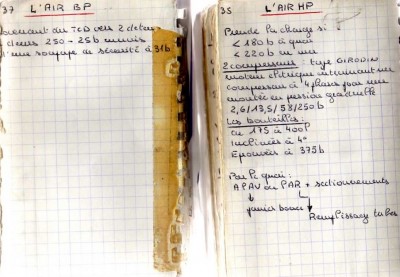 37 L'AIR BP
venant du TCD vers 2 déten
deurs 250-25b munis
d'une soupape de sécurité à 31b
35 L'AIR HP
Prendre la charge si :
< 180b à quai
< 220b en mer
2 compresseurs : type GIRODIN
moteur électrique entrainant un
compresseur à 4 phases pour une
montée en pression graduelle
2,6/13,5/58/250b
Les bouteilles :
en 175 à 400l
Inclinées à 4°
Éprouvées à 375b
Par le quai :
APAV ou PAR + sectionnements
Remplissage tubes